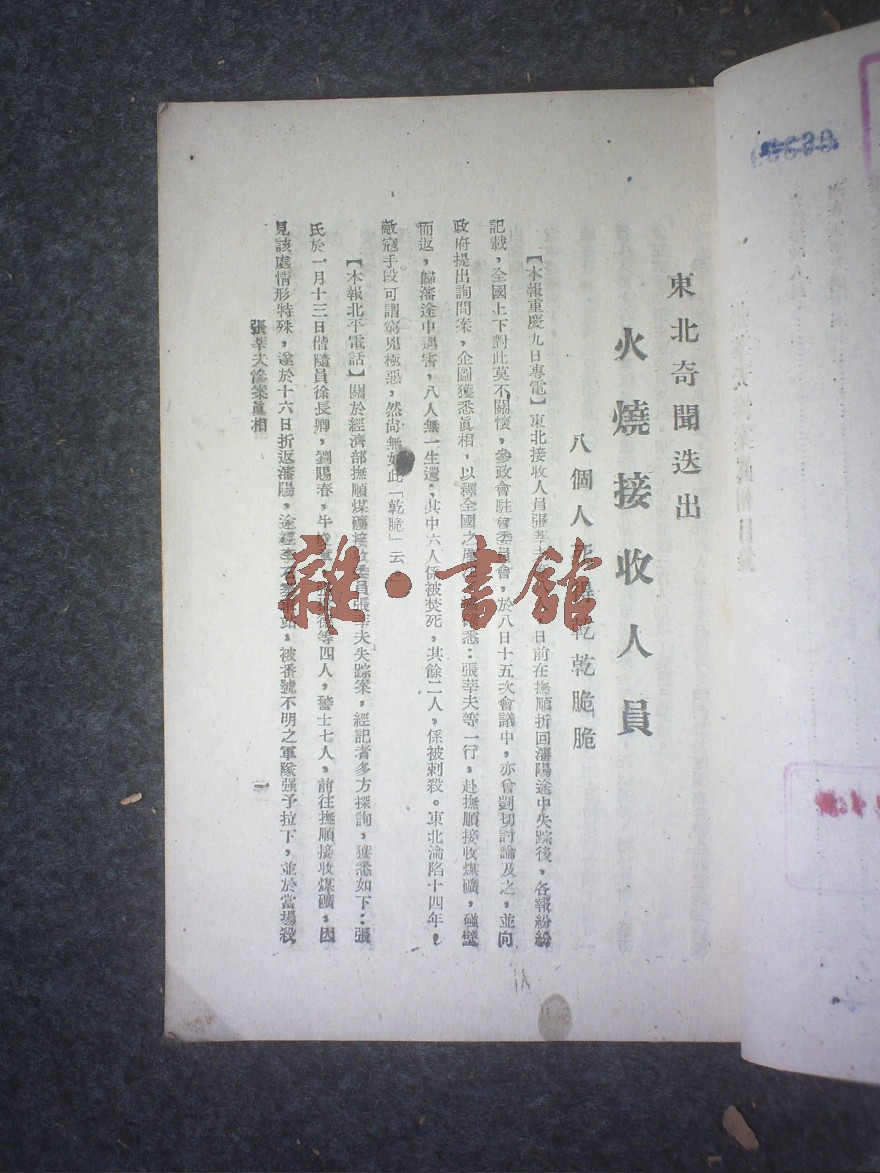 東北奇聞迭出
火燒接收人員
八個人 乾乾脆脆
【本報重慶九日專電】東北接收人員張莘夫 日前在撫順折回瀋陽途中失踪後，各報紛紛
記載，全國上下對此莫不關懷，參政會駐會委員會，於八日十五次會議中，亦曾剴切討論及之，並向
政府提出詢問案，企圖獲悉眞相，以釋全國之 悉：張莘夫等一行，赴撫順接收煤礦，碰壁
而返，歸瀋途中遇害，八人無一生還，其中六人係被焚死，其餘二人，係被刺殺。東北淪陷十四年，
敵寇手段可謂窮兇極惡，然尚無如此「乾脆」云
【本報北平電話】關於經濟部撫順煤礦接收委員張莘夫失踪案，經記者多方探詢，獲悉如下：張
氏於一月十三日偕隨員徐長卿，劉賜春，牛 等四人，警士七人，前往撫順接收煤礦，因
見該處情形特殊，遂於十六日折返瀋陽，途經李石 車站，被番號不明之軍隊强予拉下，並於當場殺
張莘夫慘案眞相
一
雜·書館